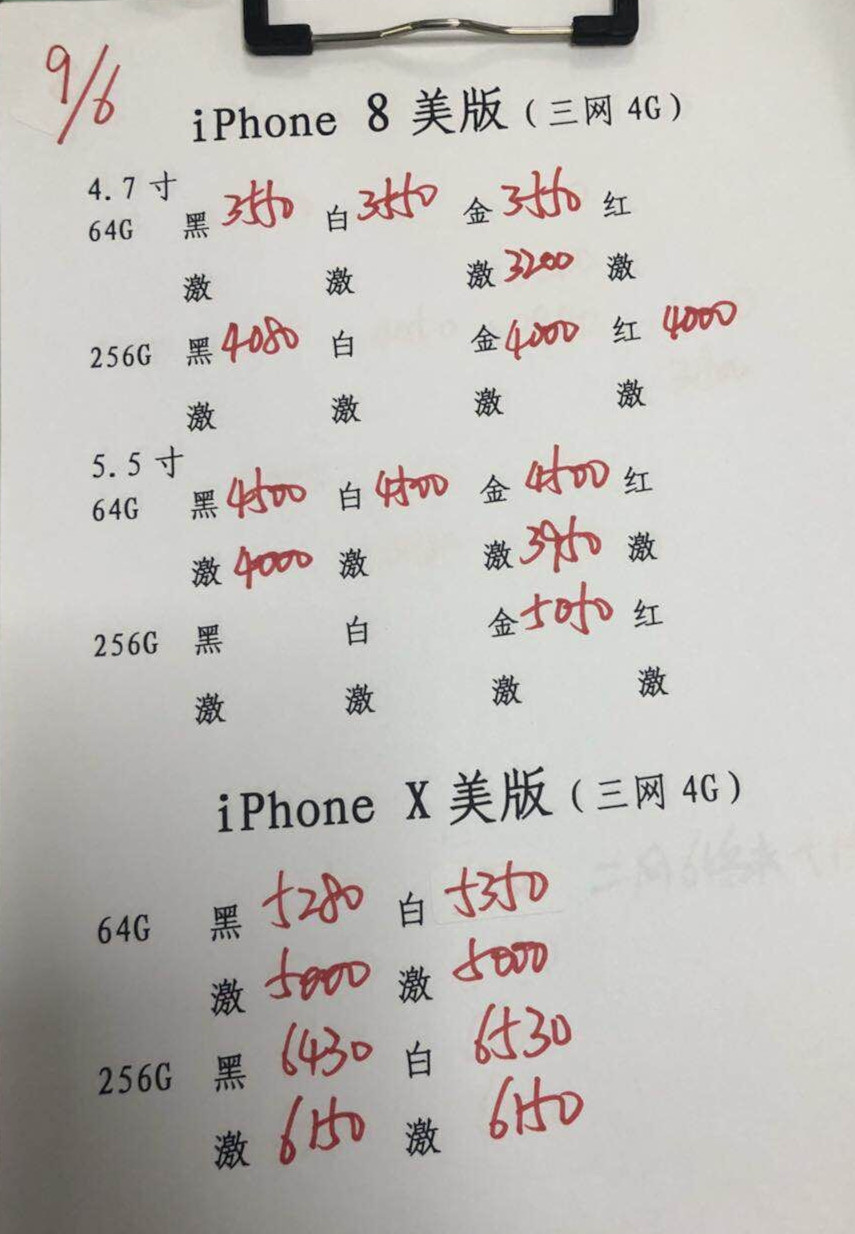 9/6
iPhone 8 美版(三网 4G)
4.7 寸
64G 黑 3550 白 3550 金 3550 红
激 激 激 3200 激
256G 黑 4080 白 金 4000 红 4000
激 激 激 激
5.5 寸
64G 黑 4500 白 4500 金 4500 红
激 4000 激 激 3950 激
256G 黑 白 金 5050 红
激 激 激 激
iPhone X 美版(三网 4G)
64G 黑 5280 白 5350
激 5000 激 5000
256G 黑 6430 白 6530
激 6150 激 6150